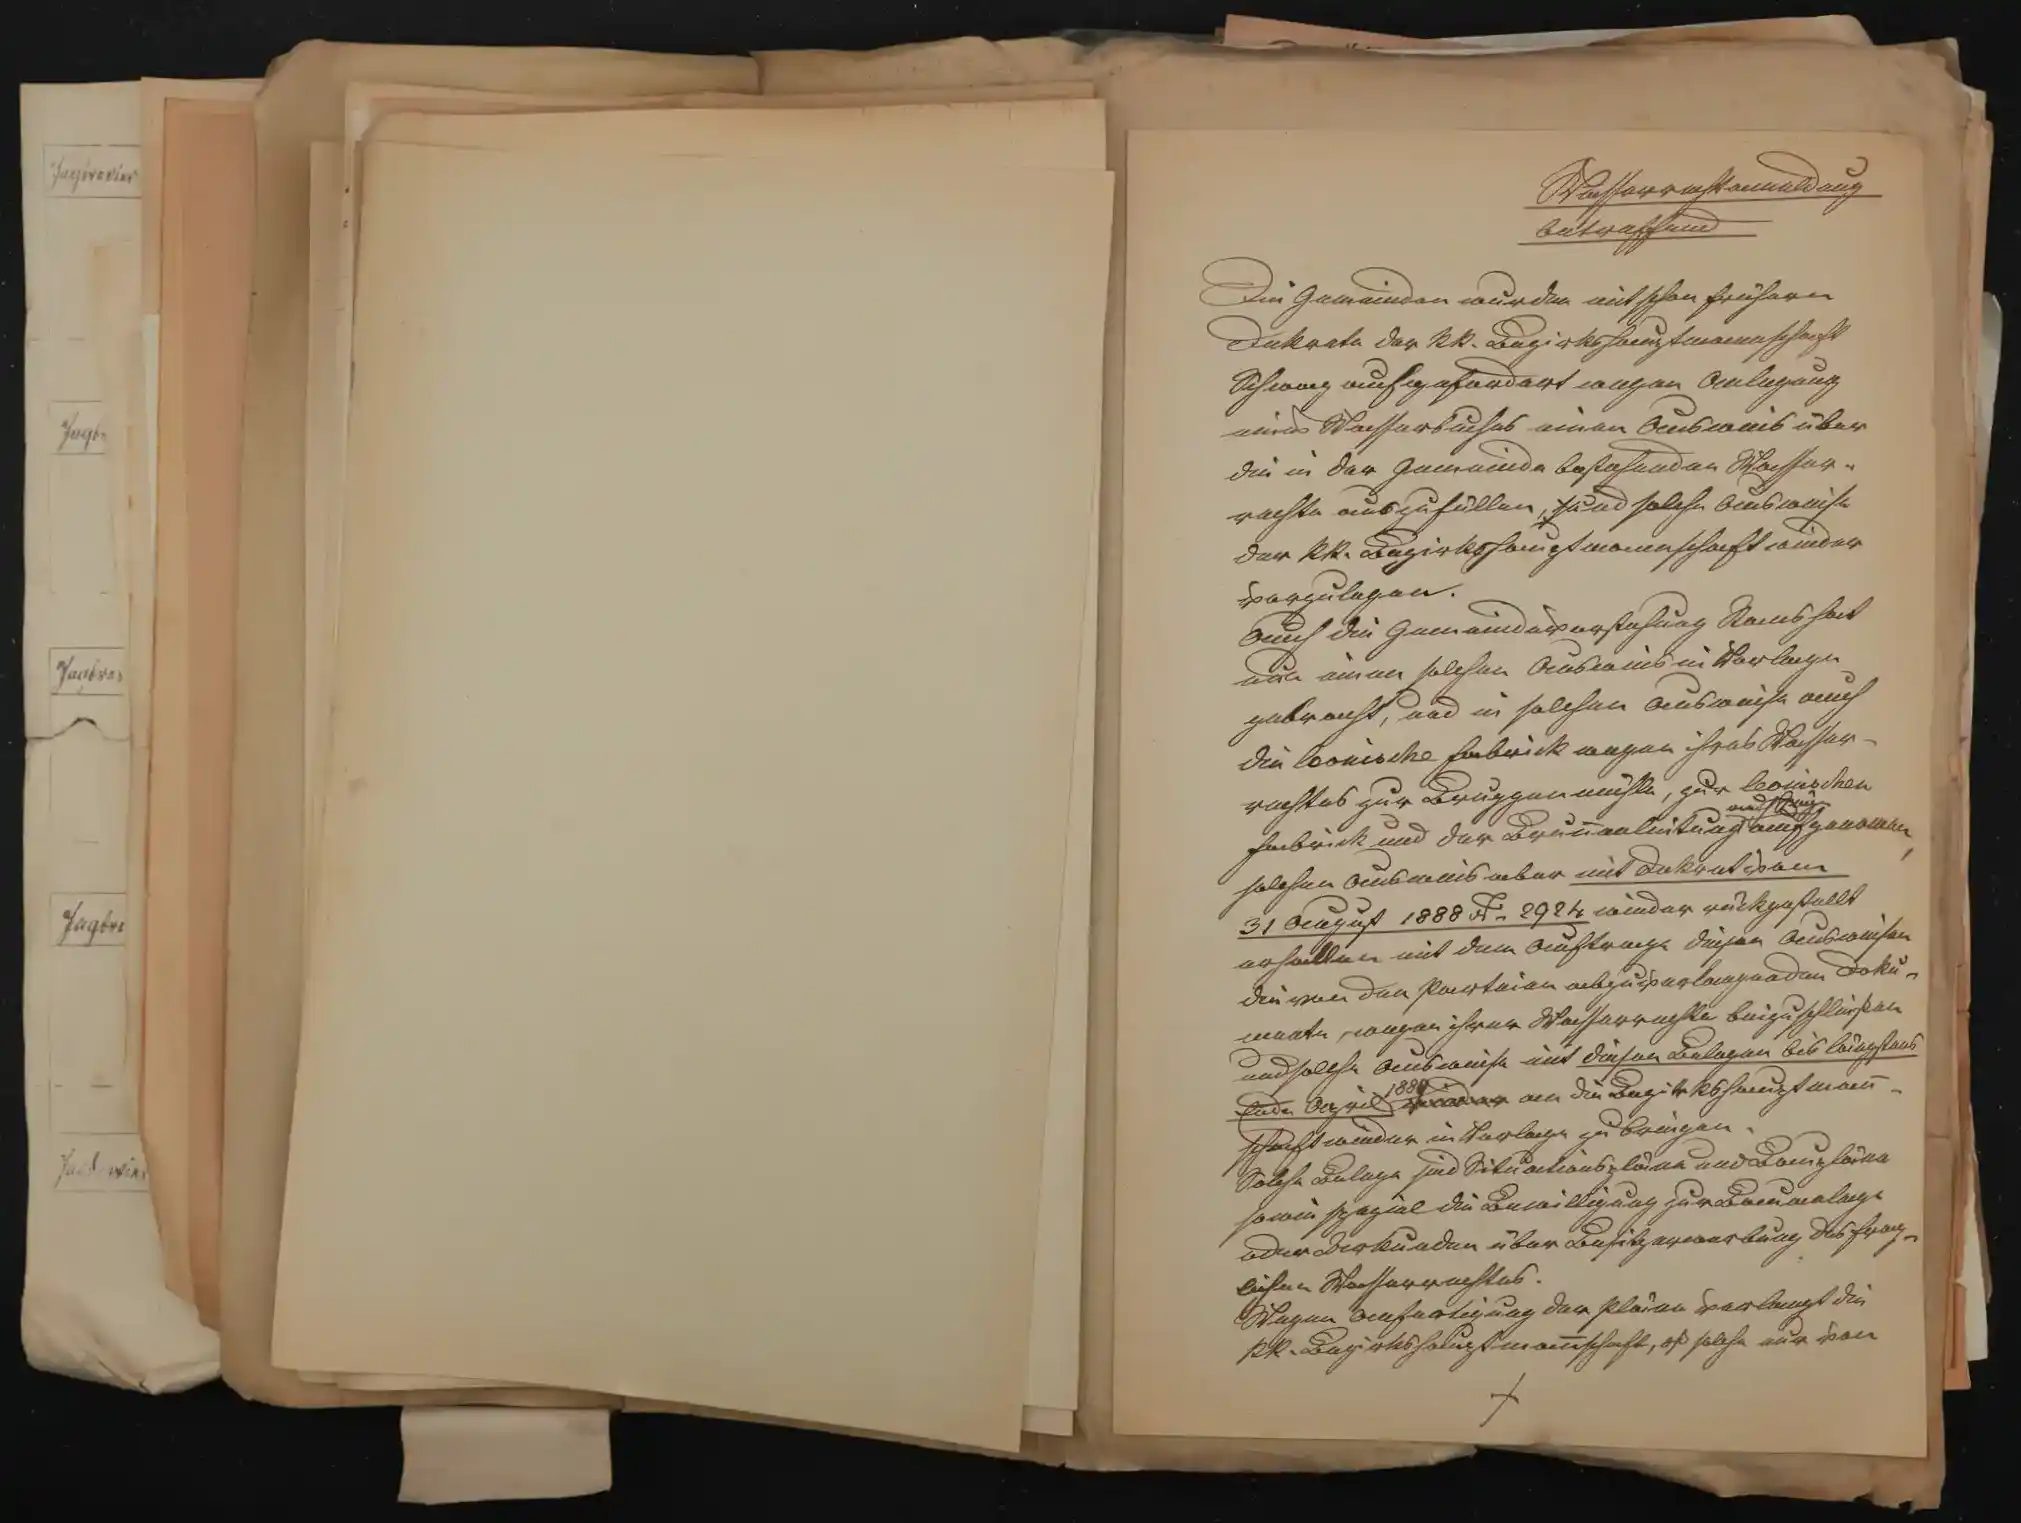 Jagdrevier
Jagdr
Jagdrev
Jagdre
Wasserrechtsanmeldung
betreffend
Die Gemeinden wurden mit schon frühern
Dekrete der kk. Bezirkshauptmannschaft
Schwaz aufgefordert wegen Anlegung
eines Wasserbuches einen Ausweis über
die in der Gemeinde bestehenden Wasser-
rechte auszufüllen, und solche Ausweise
der kk. Bezirkshauptmannschaft wieder
vorzulegen.
Auch die Gemeindevorstehung Stans hat
nun einen solchen Ausweis in Vorlage
gebracht, und in solchen Ausweise auch
die leonische Fabrick wegen ihres Wasser-
rechtes zur Bruggenmühle, zur leonischen
Fabrick und der Brunnenleitung aufgenomen,
solchen Ausweis aber mit Dekret vom
31 August 1888 No. 2924 wieder rückgestellt
erhalten mit dem Auftrage diesen Ausweisen
die von den Parteien abzuverlangenden Doku-
mente, wegen ihrer Wasserrechte beizuschließen
und solche Ausweise mit diesen Belegen bis längstens
Ende April an die Bezirkshauptmann-
schaft wieder in Vorlage zu bringen.
Solche Belege sind Situationspläne und Baupläne
sowie spezial die Bewilligung zur Bauanlage
oder Urkunden über Besitzerwerbung des frag-
lichen Wasserrechtes.
Wegen Anfertigung der Pläne verlangt die
kk. Bezirkshauptmannschaft, das solche nur von